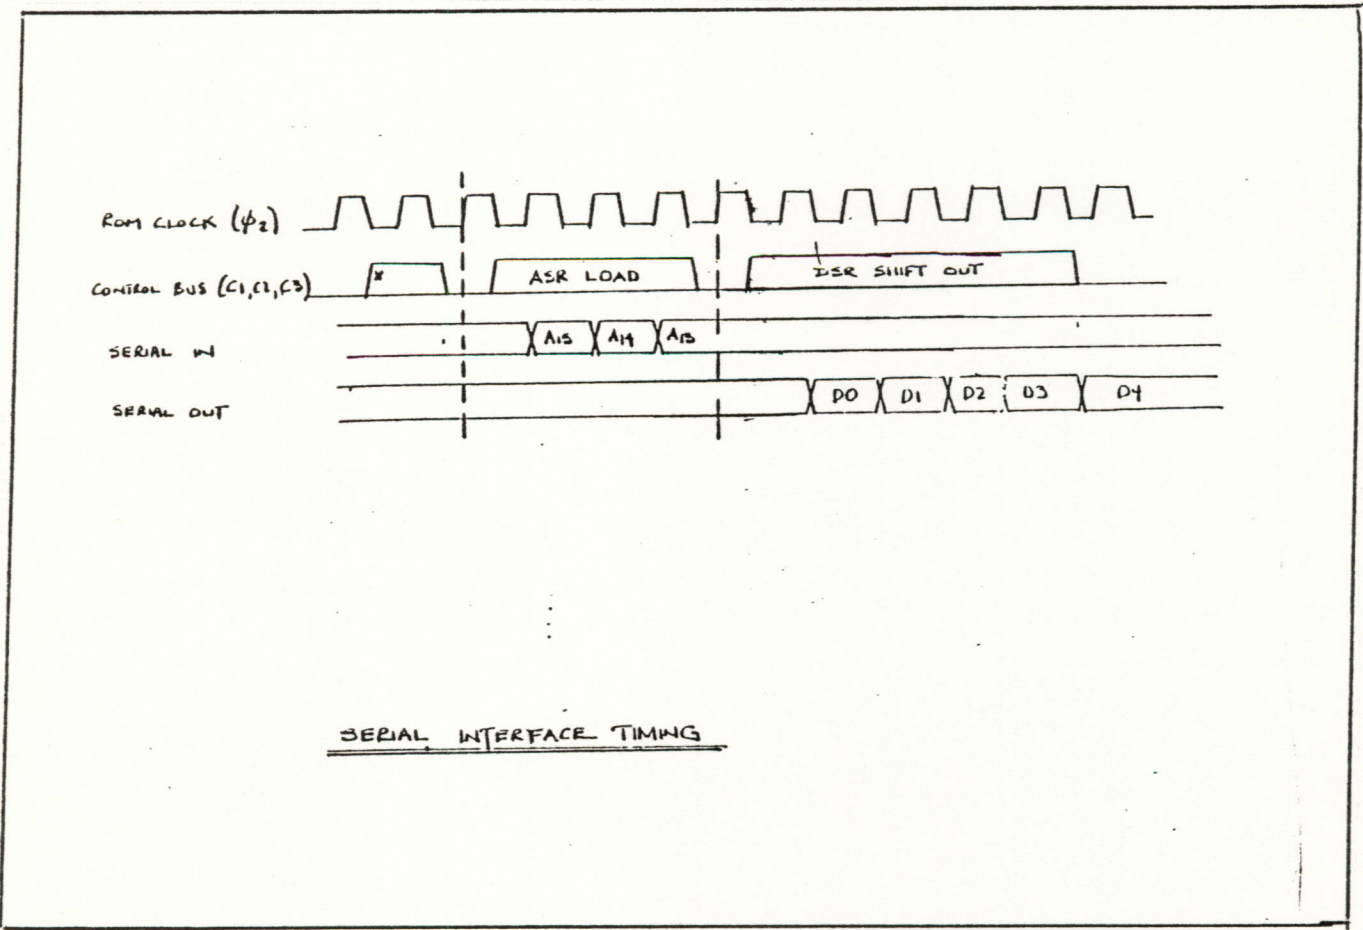 ROM CLOCK (ϕ2)
CONTROL BUS (C1,C2,C3)
* ASR LOAD DSR SHIFT OUT
SERIAL IN
A15 A14 A13
SERIAL OUT
D0 D1 D2 D3 D4
SERIAL INTERFACE TIMING